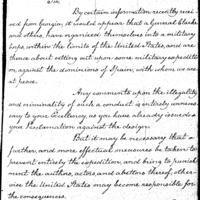 Sir,
By certain information recently recei-
ved from Georgia, it would appear that a General Clarke
and others, have organized themselves into a military
corps, within the limits of the United States, and are
thence about setting out upon some military expediti-
on, against the dominions of Spain, with whom we are
at peace.
Any comments upon the illegality
and criminality of such a conduct is entirely unneces-
sary to your Excellency, as you have already issued a
your Proclamation against the design.
But it may be necessary that a
farther, and more effectual measures be taken to
prevent entirely the expedition, and bring to punish-
ment the authors, actors and abettors thereof, other-
wise the United States may become responsible for
the consequences.